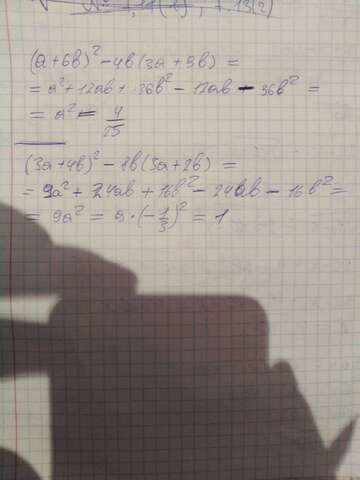 (a+6b)² - 4b(3a+9b) =
= a² + 12ab + 36b² - 12ab - 36b² =
= a² = 4/25
(3a+4b)² - 8b(3a+2b) =
= 9a² + 24ab + 16b² - 24ab - 16b² =
= 9a² = 9·(-1/3)² = 1